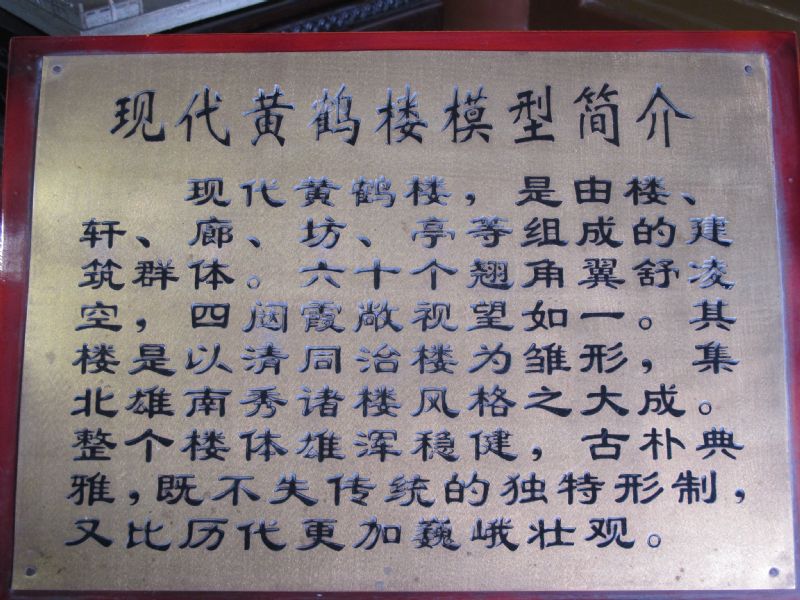 现代黄鹤楼模型简介
现代黄鹤楼，是由楼、
轩、廊、坊、亭等组成的建
筑群体。六十个翘角翼舒凌
空，四闼霞敞视望如一。其
楼是以清同治楼为雏形，集
北雄南秀诸楼风格之大成。
整个楼体雄浑稳健，古朴典
雅，既不失传统的独特形制，
又比历代更加巍峨壮观。